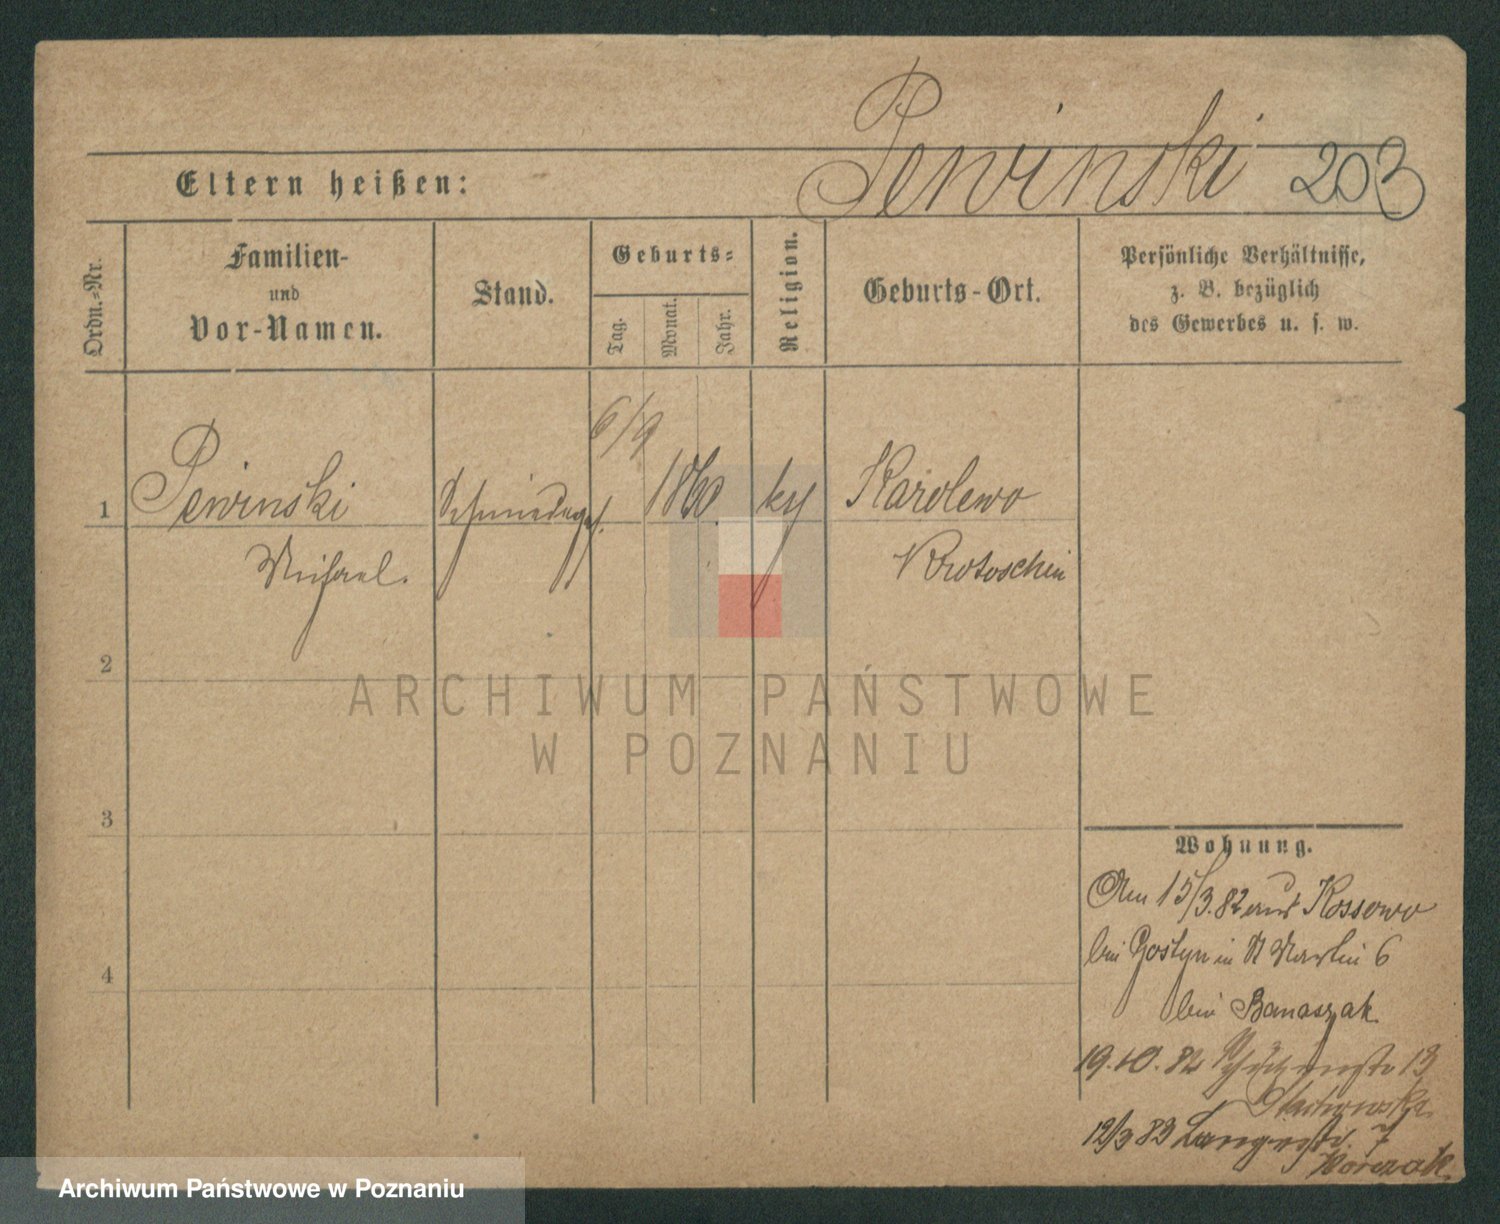 Pewinski 203
Eltern heißen:
Ordn.-Nr.
Familien-
und
Vor-Namen.
Stand.
Geburts-
Tag.
Monat.
Jahr.
Religion.
Geburts-Ort.
Persönliche Verhältnisse,
z. B. bezüglich
des Gewerbes u. s. w.
6/9
1 Pewinski Schmiedeges. 1860 kz Karolewo
Michael. Krotoschin
2
ARCHIWUM PAŃSTWOWE
W POZNANIU
3
4
Wohnung.
Am 15/3.82 aus Kossowo
bei Gostyn in St Martin 6
bei Banaszak
19.10.82 Schützenstr 13
12/3 83 Langestr. 7
Archiwum Państwowe w Poznaniu